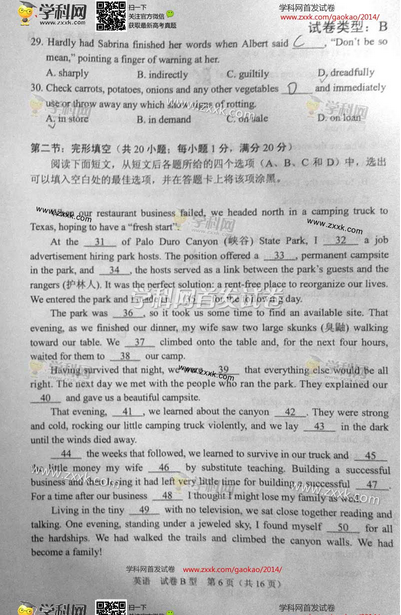 学科网
www.zxxk.com
扫一扫
关注官方微信
获取最新高考真题
学科网首发试卷
www.zxxk.com/gaokao/2014/
试卷类型：B
29. Hardly had Sabrina finished her words when Albert said C , “Don't be so
mean,” pointing a finger of warning at her.
A. sharply B. indirectly C. guiltily D. dreadfully
30. Check carrots, potatoes, onions and any other vegetables D and immediately
use or throw away any which show signs of rotting.
A. in store B. in demand C. on sale D. on loan
第二节：完形填空（共20小题；每小题1分，满分20分）
阅读下面短文，从短文后各题所给的四个选项（A、B、C和D）中，选出
可以填入空白处的最佳选项，并在答题卡上将该项涂黑。
our restaurant business failed, we headed north in a camping truck to
Texas, hoping to have a “fresh start”.
At the 31 of Palo Duro Canyon (峡谷) State Park, I 32 a job
advertisement hiring park hosts. The position offered a 33 , permanent campsite
in the park, and 34 , the hosts served as a link between the park's guests and the
rangers (护林人). It was the perfect solution: a rent-free place to reorganize our lives.
We entered the park and the following day.
The park was 36 , so it took us some time to find an available site. That
evening, as we finished our dinner, my wife saw two large skunks (臭鼬) walking
toward our table. We 37 climbed onto the table and, for the next four hours,
waited for them to 38 our camp.
Having survived that night, we 39 that everything else would be all
right. The next day we met with the people who ran the park. They explained our
40 and gave us a beautiful campsite.
That evening, 41 , we learned about the canyon 42 . They were strong
and cold, rocking our little camping truck violently, and we lay 43 in the dark
until the winds died away.
44 the weeks that followed, we learned to survive in our truck and 45
the little money my wife 46 by substitute teaching. Building a successful
business and then losing it had left very little time for building a successful 47 .
For a time after our business 48 I thought I might lose my family as well.
Living in the tiny 49 with no television, we sat close together reading and
talking. One evening, standing under a jeweled sky, I found myself 50 for all
the hardships. We had walked the trails and climbed the canyon walls. We had
become a family!
英语 试卷B型 第6页（共16页）
学科网首发试卷
www.zxxk.com/gaokao/2014/